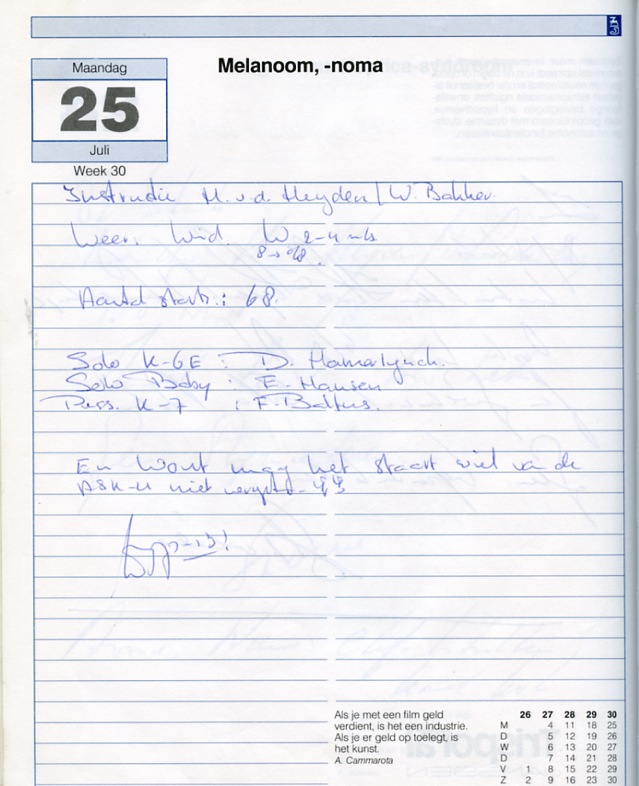 Maandag
25
Juli
Week 30
Melanoom, -noma
Instructie H. v.d. Heyden / W. Bakker
Weer. Wind. W 2-4 m/s
8 → 
Aantal starts: 68.
Solo K-6E : D. Hamerlynch.
Solo Baby : E. Hansen
Pass. K-7 : F. Baltus.
En Wout mag het staart wiel van de
ASK-4 niet 
Als je met een film geld
verdient, is het een industrie.
Als je er geld op toelegt, is
het kunst.
A. Cammarota
26 27 28 29 30
M 4 11 18 25
D 5 12 19 26
W 6 13 20 27
D 7 14 21 28
V 1 8 15 22 29
Z 2 9 16 23 30